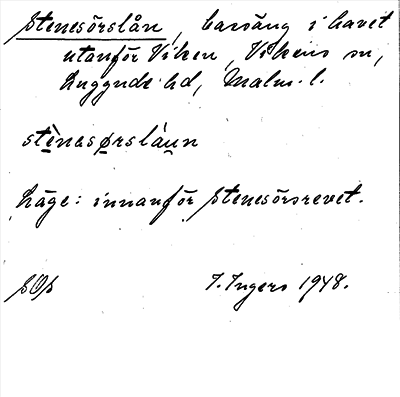 Stenesörslån, bassäng i havet
utanför Viken, Vikens sn,
Luggude hd, Malm. l.
stènəsørsláun
Läge: innanför Stenesörsrevet.
SOS I. Ingers 1948.